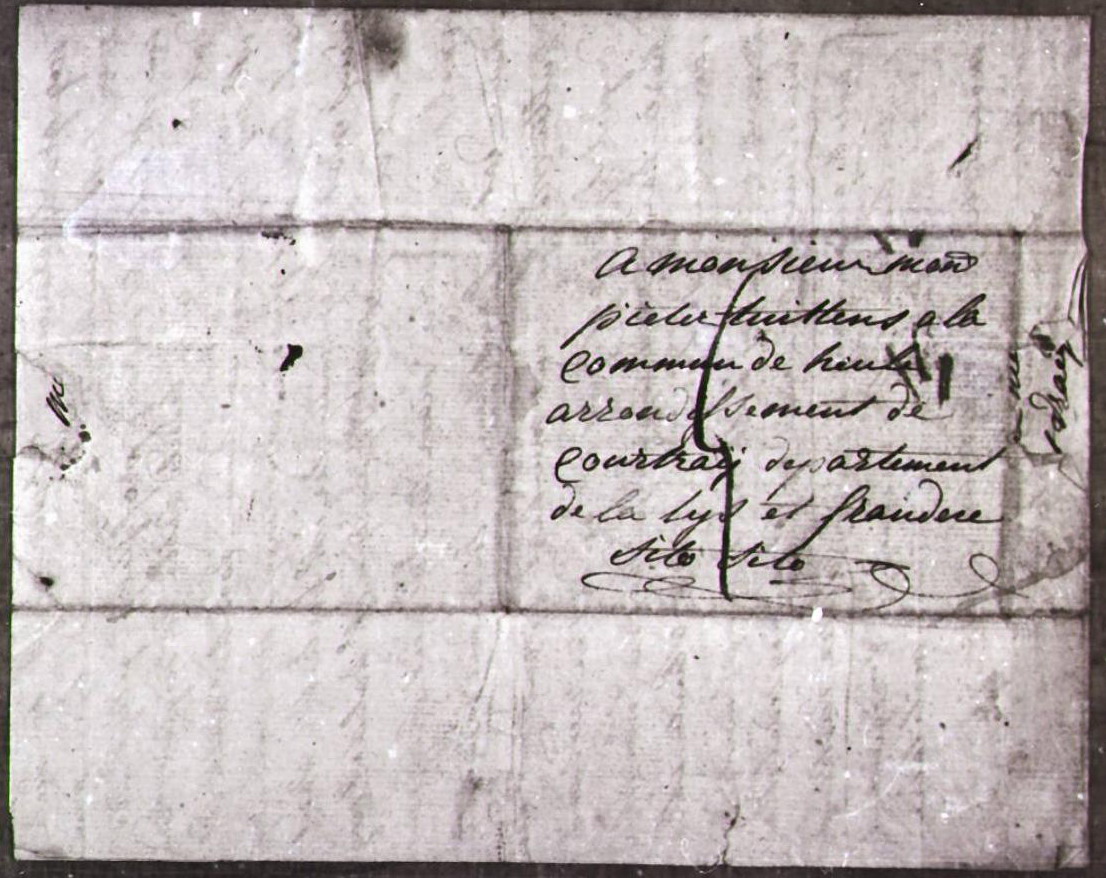 a monsieur mon
pieter tuittens a la
commun de heule
arrondissement de
Courtraij departement
de la lijs et frandere
sito sito